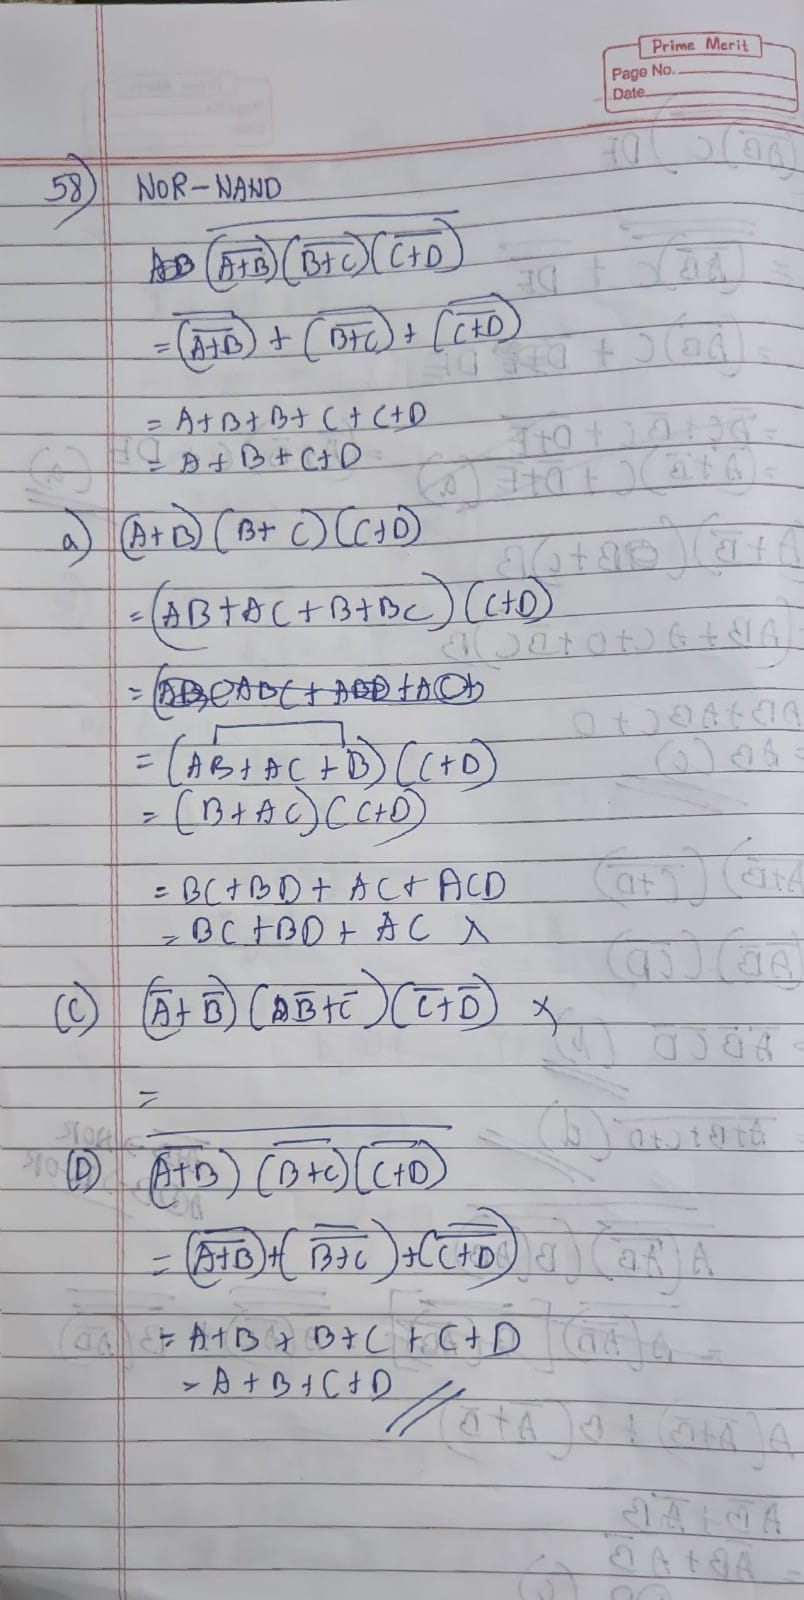 Prime Merit
Page No.
Date
58) NOR-NAND
(A̅+̅B̅)(B̅+̅C̅)(C̅+̅D̅)
= (A̅+̅B̅) + (B̅+̅C̅) + (C̅+̅D̅)
= A+B+B+C+C+D
= A+B+C+D
a) (A+B)(B+C)(C+D)
= (AB+AC+B+BC)(C+D)
= (AB+AC+B)(C+D)
= (B+AC)(C+D)
= BC+BD+AC+ACD
= BC+BD+AC X
(C) (A̅+B̅)(B̅+C̅)(C̅+D̅) X
=
(D) (A̅+̅B̅)(B̅+̅C̅)(C̅+̅D̅)
= (A̅+̅B̅)+(B̅+̅C̅)+(C̅+̅D̅)
= A+B+B+C+C+D
= A+B+C+D //